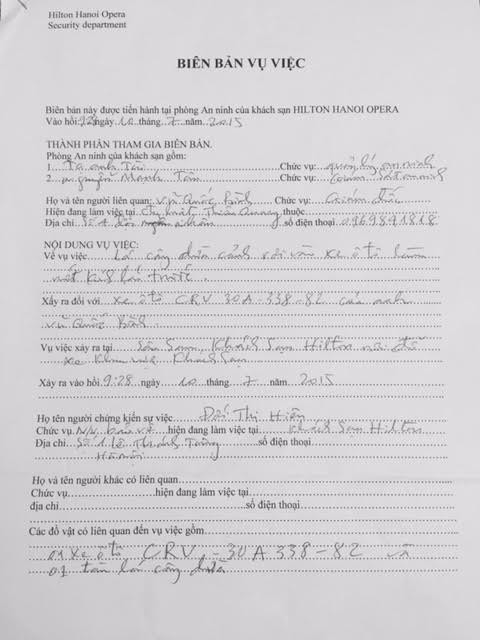 Hilton Hanoi Opera
Security department
BIÊN BẢN VỤ VIỆC
Biên bản này được tiến hành tại phòng An ninh của khách sạn HILTON HANOI OPERA
Vào hồi 9:28 ngày 10 tháng 7 năm 2015
THÀNH PHẦN THAM GIA BIÊN BẢN.
Phòng An ninh của khách sạn gồm:
1. Tạ Anh Tài Chức vụ: quản lý an ninh
2. Nguyễn Mạnh Tân Chức vụ: Giám sát an ninh
Họ và tên người liên quan: Vũ Quốc Bình Chức vụ: Giám đốc
Hiện đang làm việc tại: thuộc
Địa chỉ: Số 1 số điện thoại 0969891818
NỘI DUNG VỤ VIỆC:
Về vụ việc Lá cây dừa cảnh rơi vào xe ô tô làm
nứt kính lái trước.
Xẩy ra đối với xe ô tô CRV 30A-338-82 của anh
Vũ Quốc Bình.
Vụ việc xảy ra tại Sân sau, Khách Sạn Hilton nơi đỗ
xe Khu vực Khách Sạn
Xảy ra vào hồi 9:28 ngày 10 tháng 7 năm 2015
Họ tên người chứng kiến sự việc Thị Hiền
Chức vụ N/v bảo vệ hiện đang làm việc tại Khách Sạn Hilton
Địa chỉ Số 1 Lê Thánh Tông số điện thoại
Hà nội
Họ và tên người khác có liên quan
Chức vụ hiện đang làm việc tại
địa chỉ số điện thoại
Các đồ vật có liên quan đến vụ việc gồm
01 xe ô tô CRV, -30A 338-82 và
01 tàu lá cây dừa